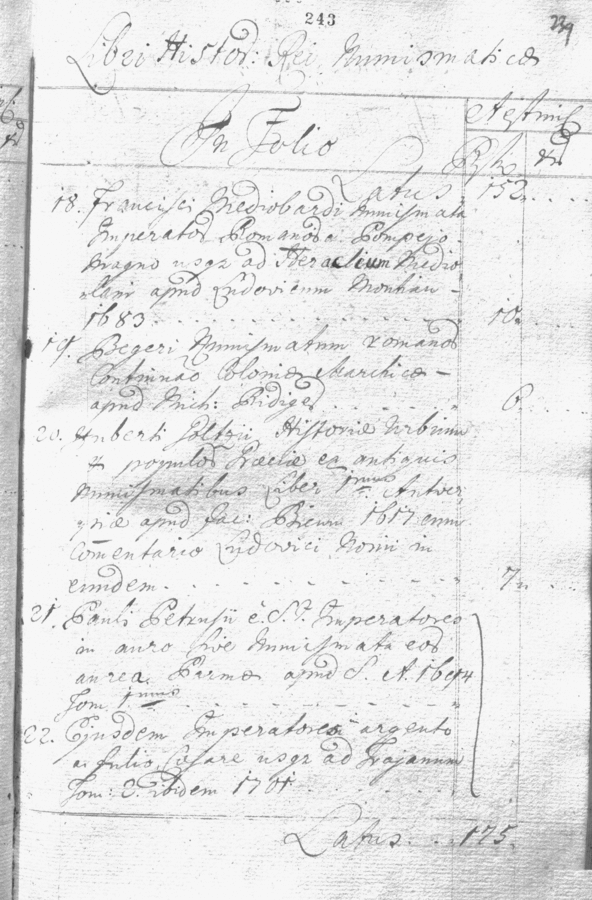 243
239
Libri Histor: Rei Numismaticæ
In Folio
Aestimō
Rth
Latus . 152 . . . .
18. Francisci Mediobardi Numismata
Imperator Romanor a Pompejo
Magno usqz ad Heraclium Medio
lani apud Ludovicum Montiau -
1683 . . . . . . . . . . 10.
19. Begeri Numismatum romanor
Continuao Coloniæ Marchicæ -
apud Mich: Rüdiger . . . . 6 . .
20. Huberti Goltzii Historiæ Urbium
& populor Græciæ ex antiquis
Numismatibus Liber 1mus Antver
piæ apud Jac: Bieum 1617 cum
Comentario Ludovici Nonii in
eundem . . . . . . . . . 7. . . .
21. Pauli Petrusii è. S. J. Imperatores
in auro sive Numismata eor
aurea. Parmæ apud S. A. 1694
Tom. 1mus . . . . . . . .
22. Ejusdem Imperatores argento
a Julio Cæsare usqz ad Trajanum
Tom: 2. ibidem 1701 . . . .
Latus . . . 175.